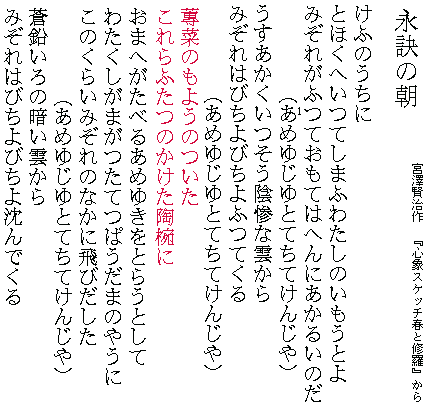 永訣の朝
宮澤賢治作 『心象スケッチ春と修羅』から
けふのうちに
とほくへいつてしまふわたしのいもうとよ
みぞれがふつておもてはへんにあかるいのだ
(あめゆじゆとてちてけんじや)
1
うすあかくいつそう陰惨な雲から
みぞれはびちよびちよふつてくる
(あめゆじゆとてちてけんじや)
蓴菜のもようのついた
これらふたつのかけた陶椀に
おまへがたべるあめゆきをとらうとして
わたくしがまがつたてつぽうだまのやうに
このくらいみぞれのなかに飛びだした
(あめゆじゆとてちてけんじや)
蒼鉛いろの暗い雲から
みぞれはびちよびちよ沈んでくる